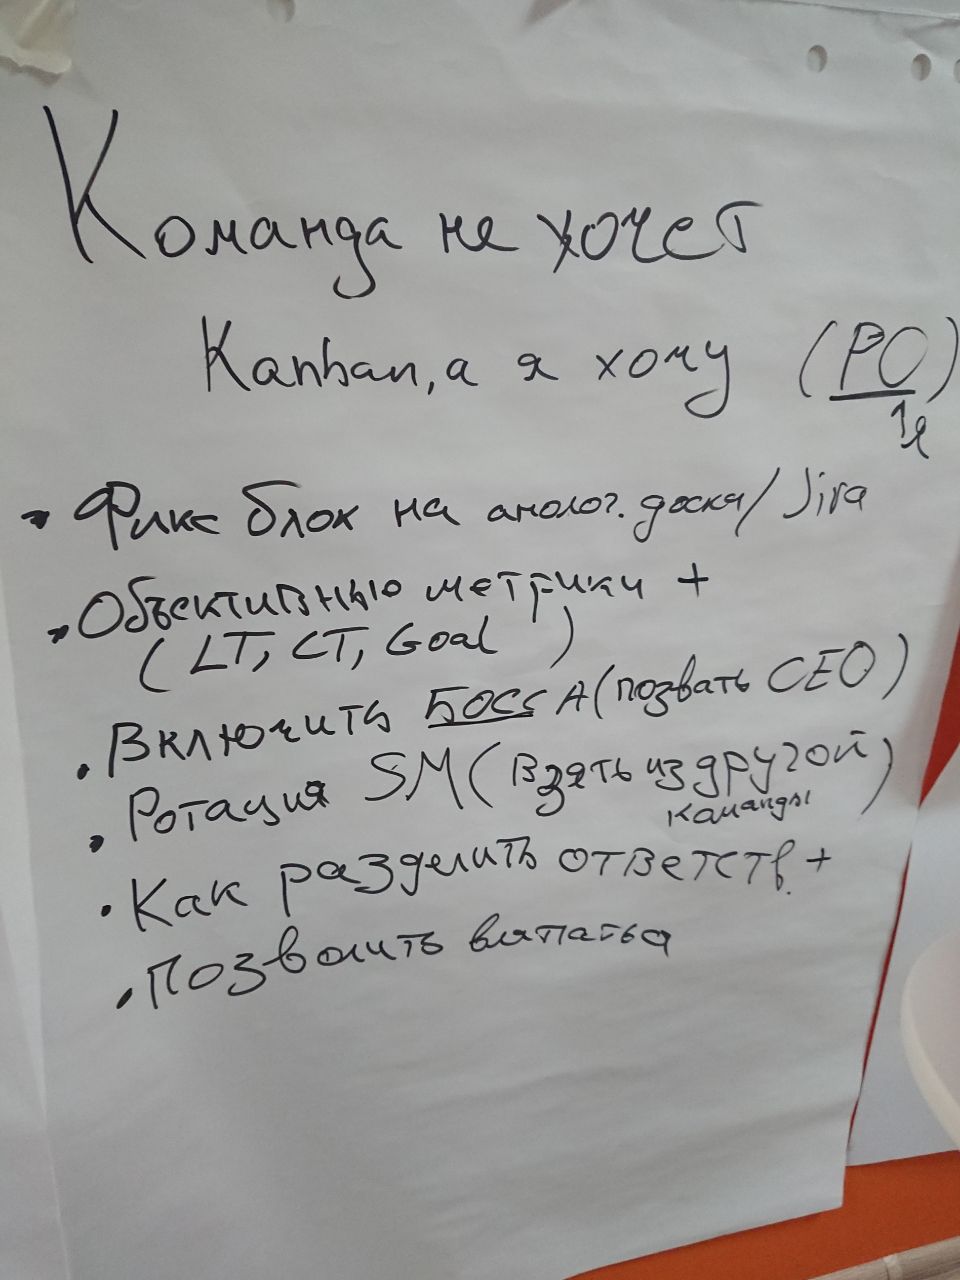 Команда не хочет
Kanban, а я хочу (PO)
1я
Фикс блок на аналог. доске/Jira
Объективные метрики +
(LT, CT, Goal)
Включить БОССА (позвать CEO)
Ротация SM (взять из другой
команды)
Как разделить ответств. +
Позволить